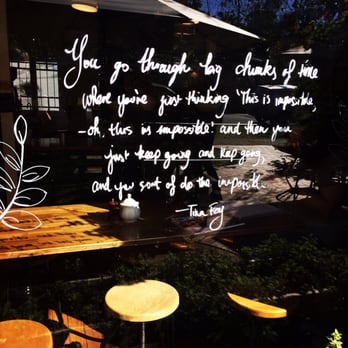 You go through big chunks of time
where you're just thinking 'This is impossible,
- oh, this is impossible.' and then you
just keep going and keep going,
and you sort of do the impossible.
- Tina Fey